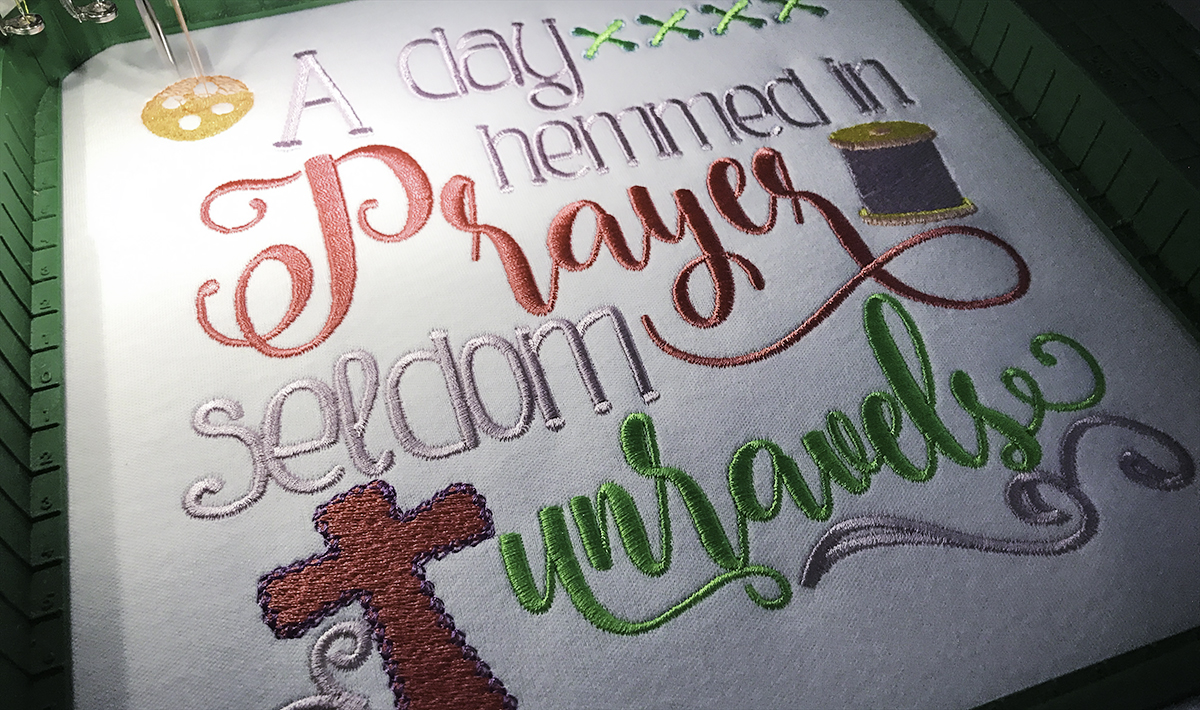 A day
hemmed in
Prayer
seldom
unravels